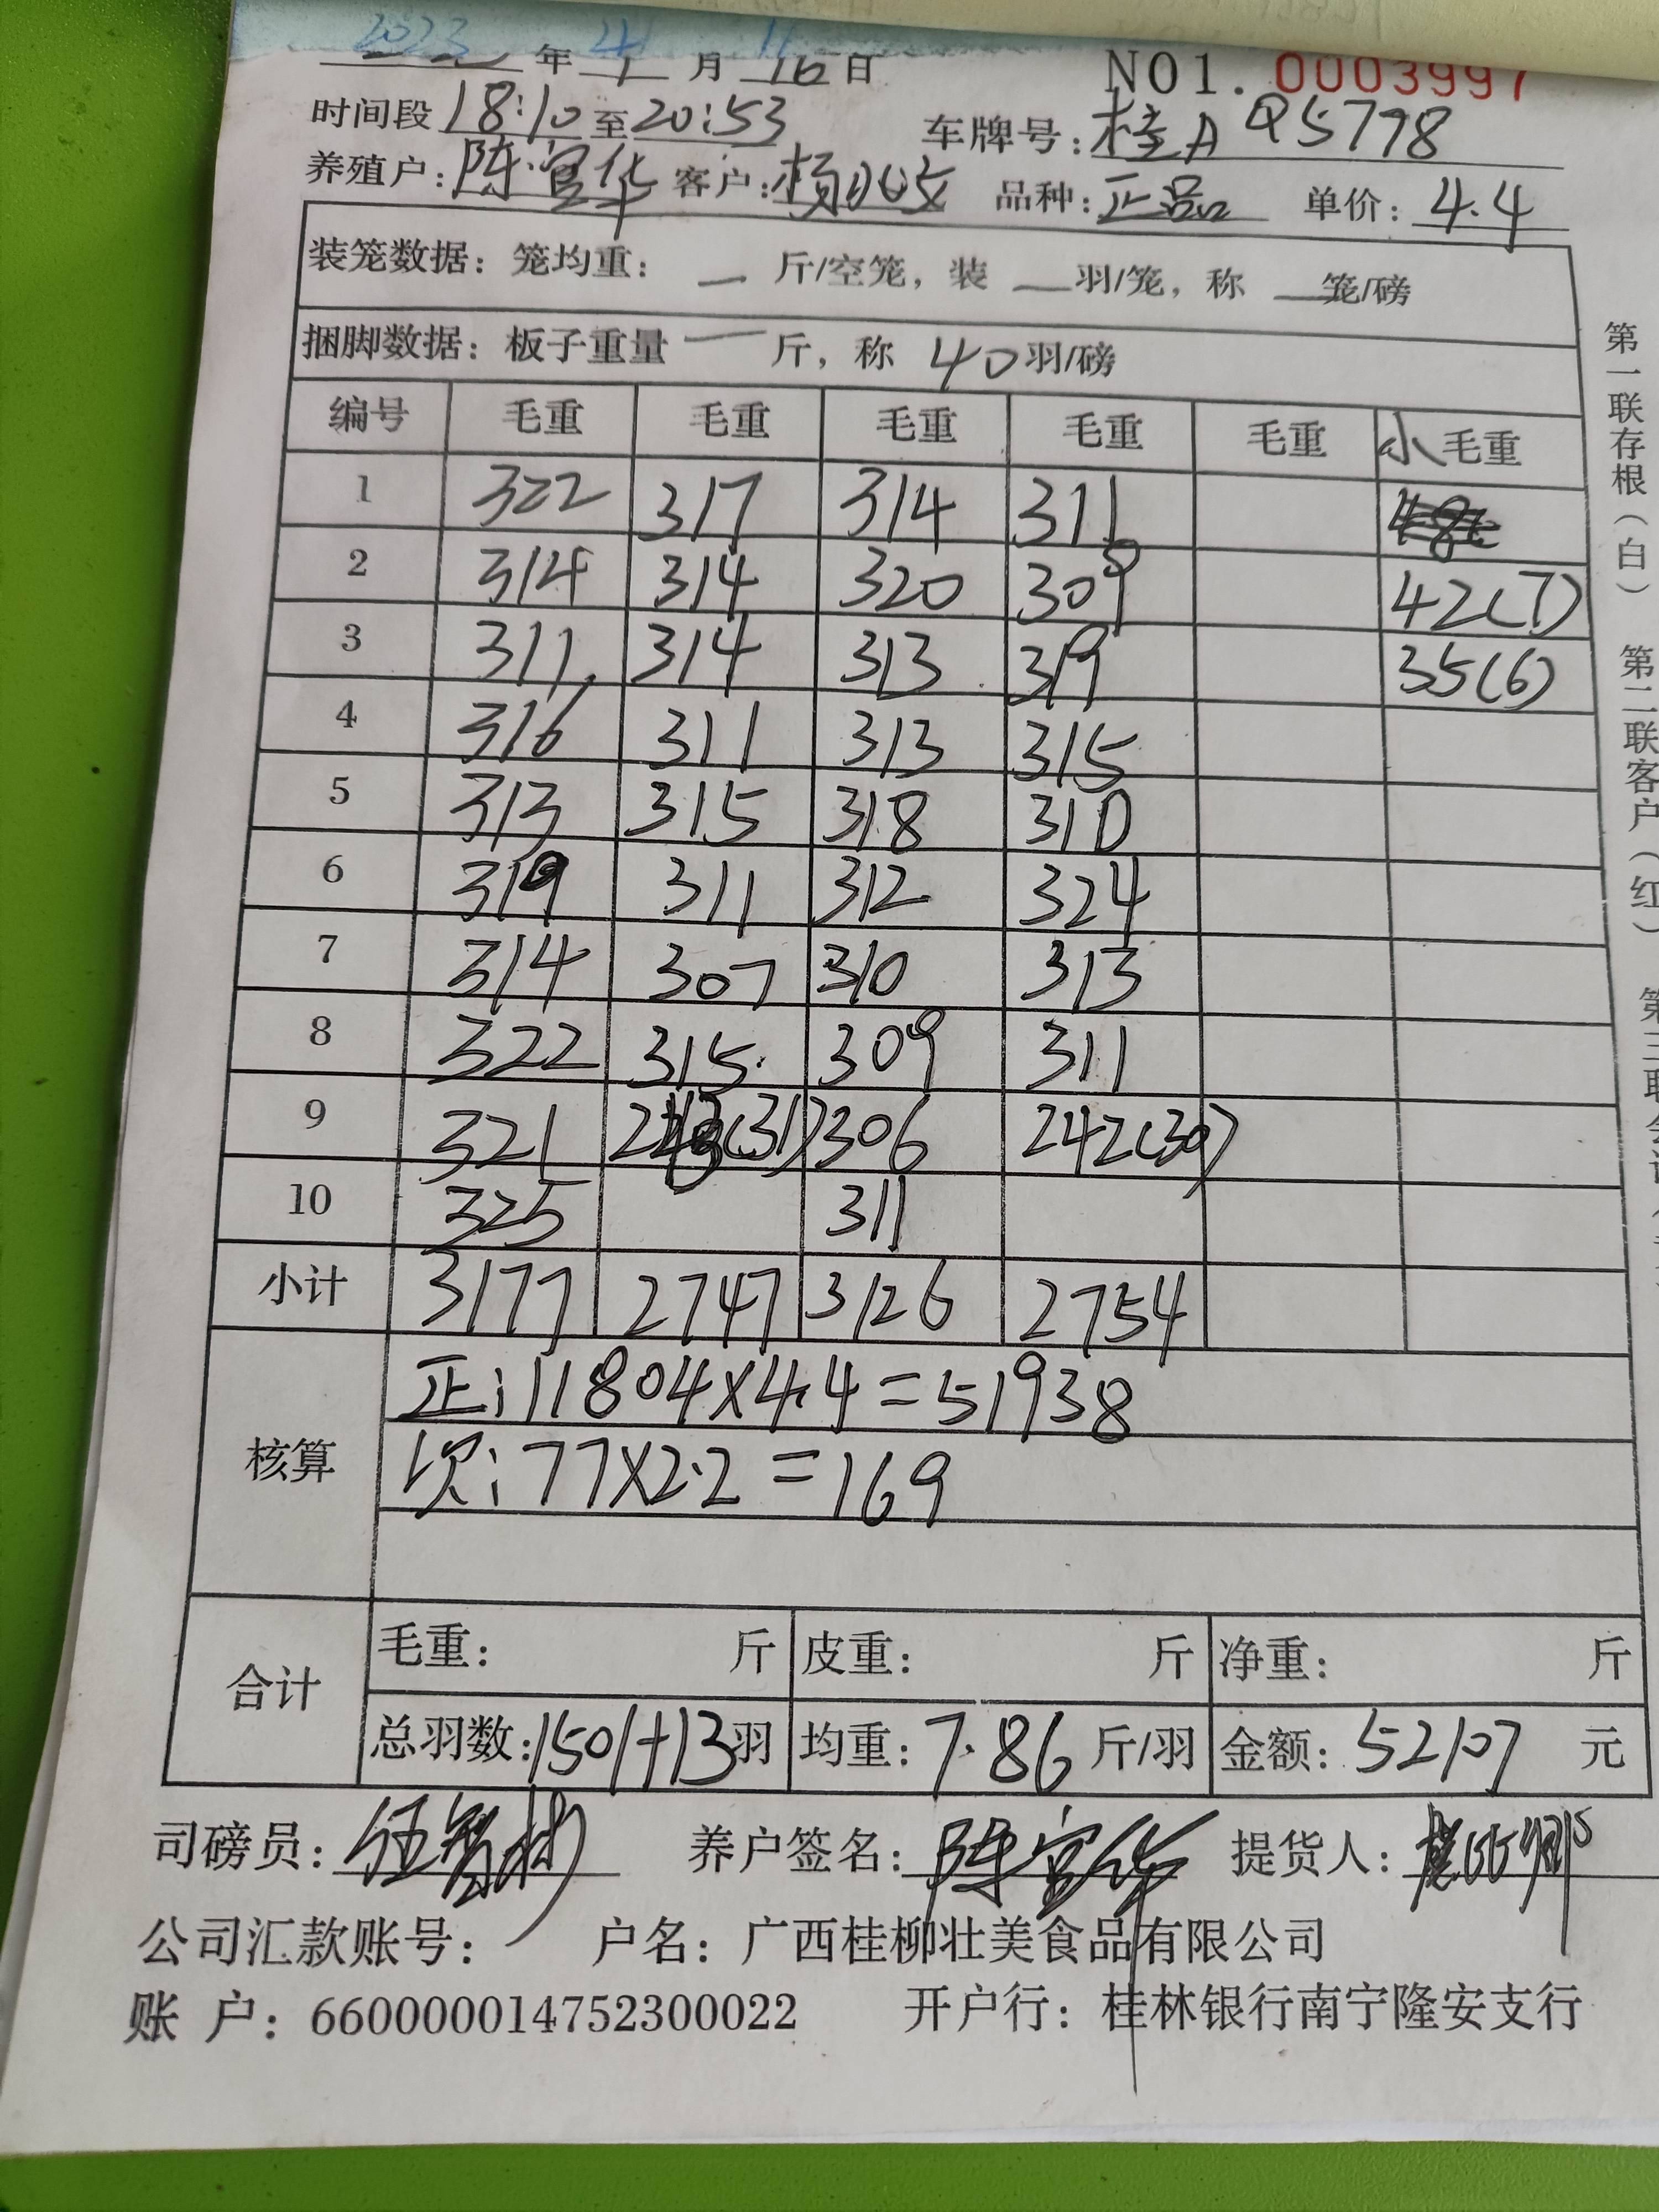 年 月 16 日 NO1. 0003997
时间段 18:10 至 20:53 车牌号: 桂A Q5778
养殖户: 陈宣华 客户: 杨 品种: 正品 单价: 4.4
装笼数据: 笼均重: — 斤/空笼, 装 — 羽/笼, 称 — 笼/磅
捆脚数据: 板子重量 — 斤, 称 40 羽/磅
编号 毛重 毛重 毛重 毛重 毛重 小毛重
1 322 317 314 311
2 314 314 320 309 42(7)
3 311 314 313 319 35(6)
4 316 311 313 315
5 313 315 318 310
6 319 311 312 324
7 314 307 310 313
8 322 315 309 311
9 321 (31) 306 242(30)
10 325 311
小计 3177 2747 3126 2754
核算
正: 11804×4.4=51938
次: 77×2.2=169
合计
毛重: 斤 皮重: 斤 净重: 斤
总羽数: 1501+13 羽 均重: 7.86 斤/羽 金额: 52107 元
司磅员: 养户签名: 陈宣华 提货人:
公司汇款账号: 户名: 广西桂柳壮美食品有限公司
账 户: 660000014752300022 开户行: 桂林银行南宁隆安支行
第一联存根(白) 第二联客户(红)